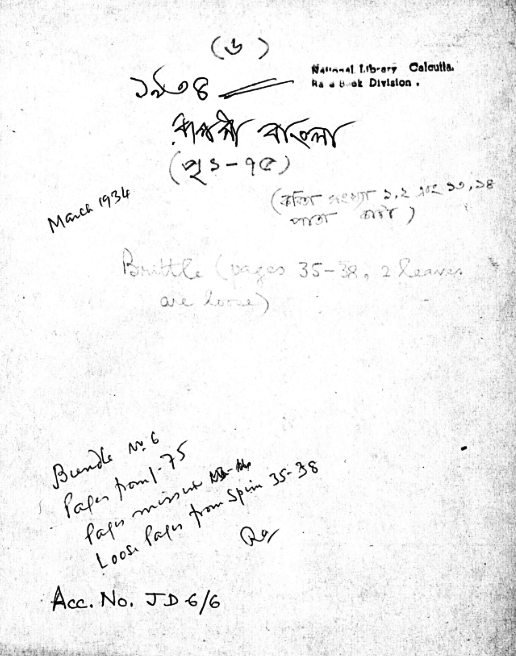 (৬)
National Library Calcutta.
Rare Book Division.
১৯৩৪
রূপসী বাংলা
(পৃ ১-৭৫)
March 1934
(কবিতা সংখ্যা ১,২ এবং ১৩,১৪
পাতা কাটা)
Brittle (pages 35-38, 2 leaves
are loose)
Bundle No. 6
Pages from 1-75
Pages missing
Loose Pages from Spin 35-38
Acc. No. JD 6/6